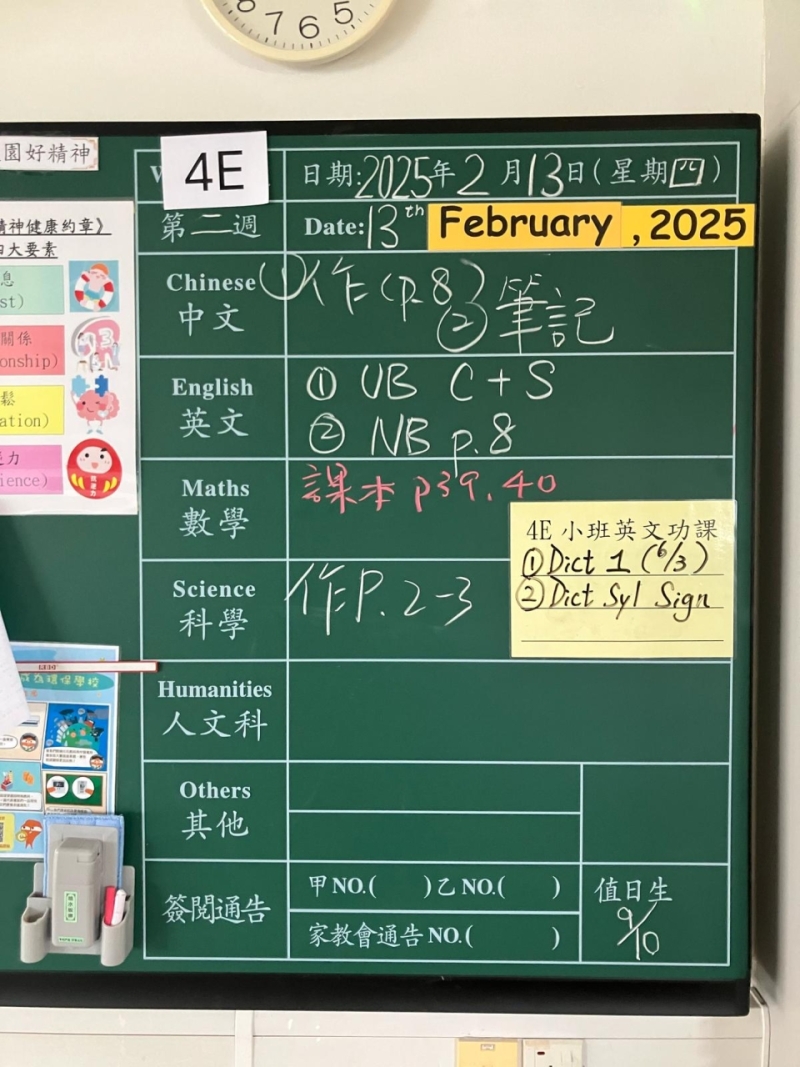 7 6 5
園好精神
4E
日期:2025年2月13日(星期四)
第二週
Date:13th February, 2025
精神健康約章》
四大要素
Chinese
中文
①作(p.8)
②筆記
English
英文
① UB C+S
② NB p.8
Maths
數學
課本 p39.40
4E 小班英文功課
①Dict 1 (6/3)
②Dict Syl Sign
Science
科學
作P.2-3
Humanities
人文科
成為環保學校
Others
其他
簽閱通告
甲NO.( )乙NO.( )
家教會通告NO.( )
值日生
9/10